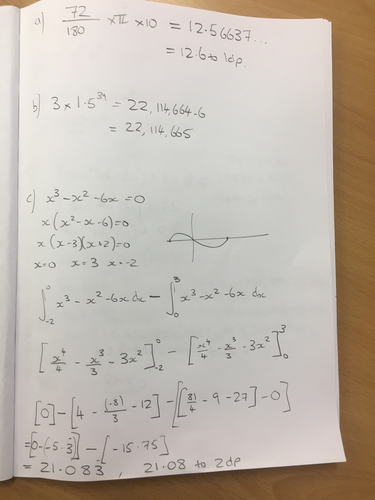 a) 72/180 × π × 10 = 12.56637...
= 12.6 to 1dp.
b) 3 × 1.5³⁹ = 22,114,664.6
= 22,114,665
c) x³ - x² - 6x = 0
x(x² - x - 6) = 0
x(x-3)(x+2) = 0
x=0 x=3 x=-2
∫₋₂⁰ x³ - x² - 6x dx - ∫₀³ x³ - x² - 6x dx
[x⁴/4 - x³/3 - 3x²]₋₂⁰ - [x⁴/4 - x³/3 - 3x²]₀³
[0] - [4 - (-8)/3 - 12] - [[81/4 - 9 - 27] - 0]
= [0 - (-5.3̇)] - [-15.75]
= 21.083̇, 21.08 to 2dp